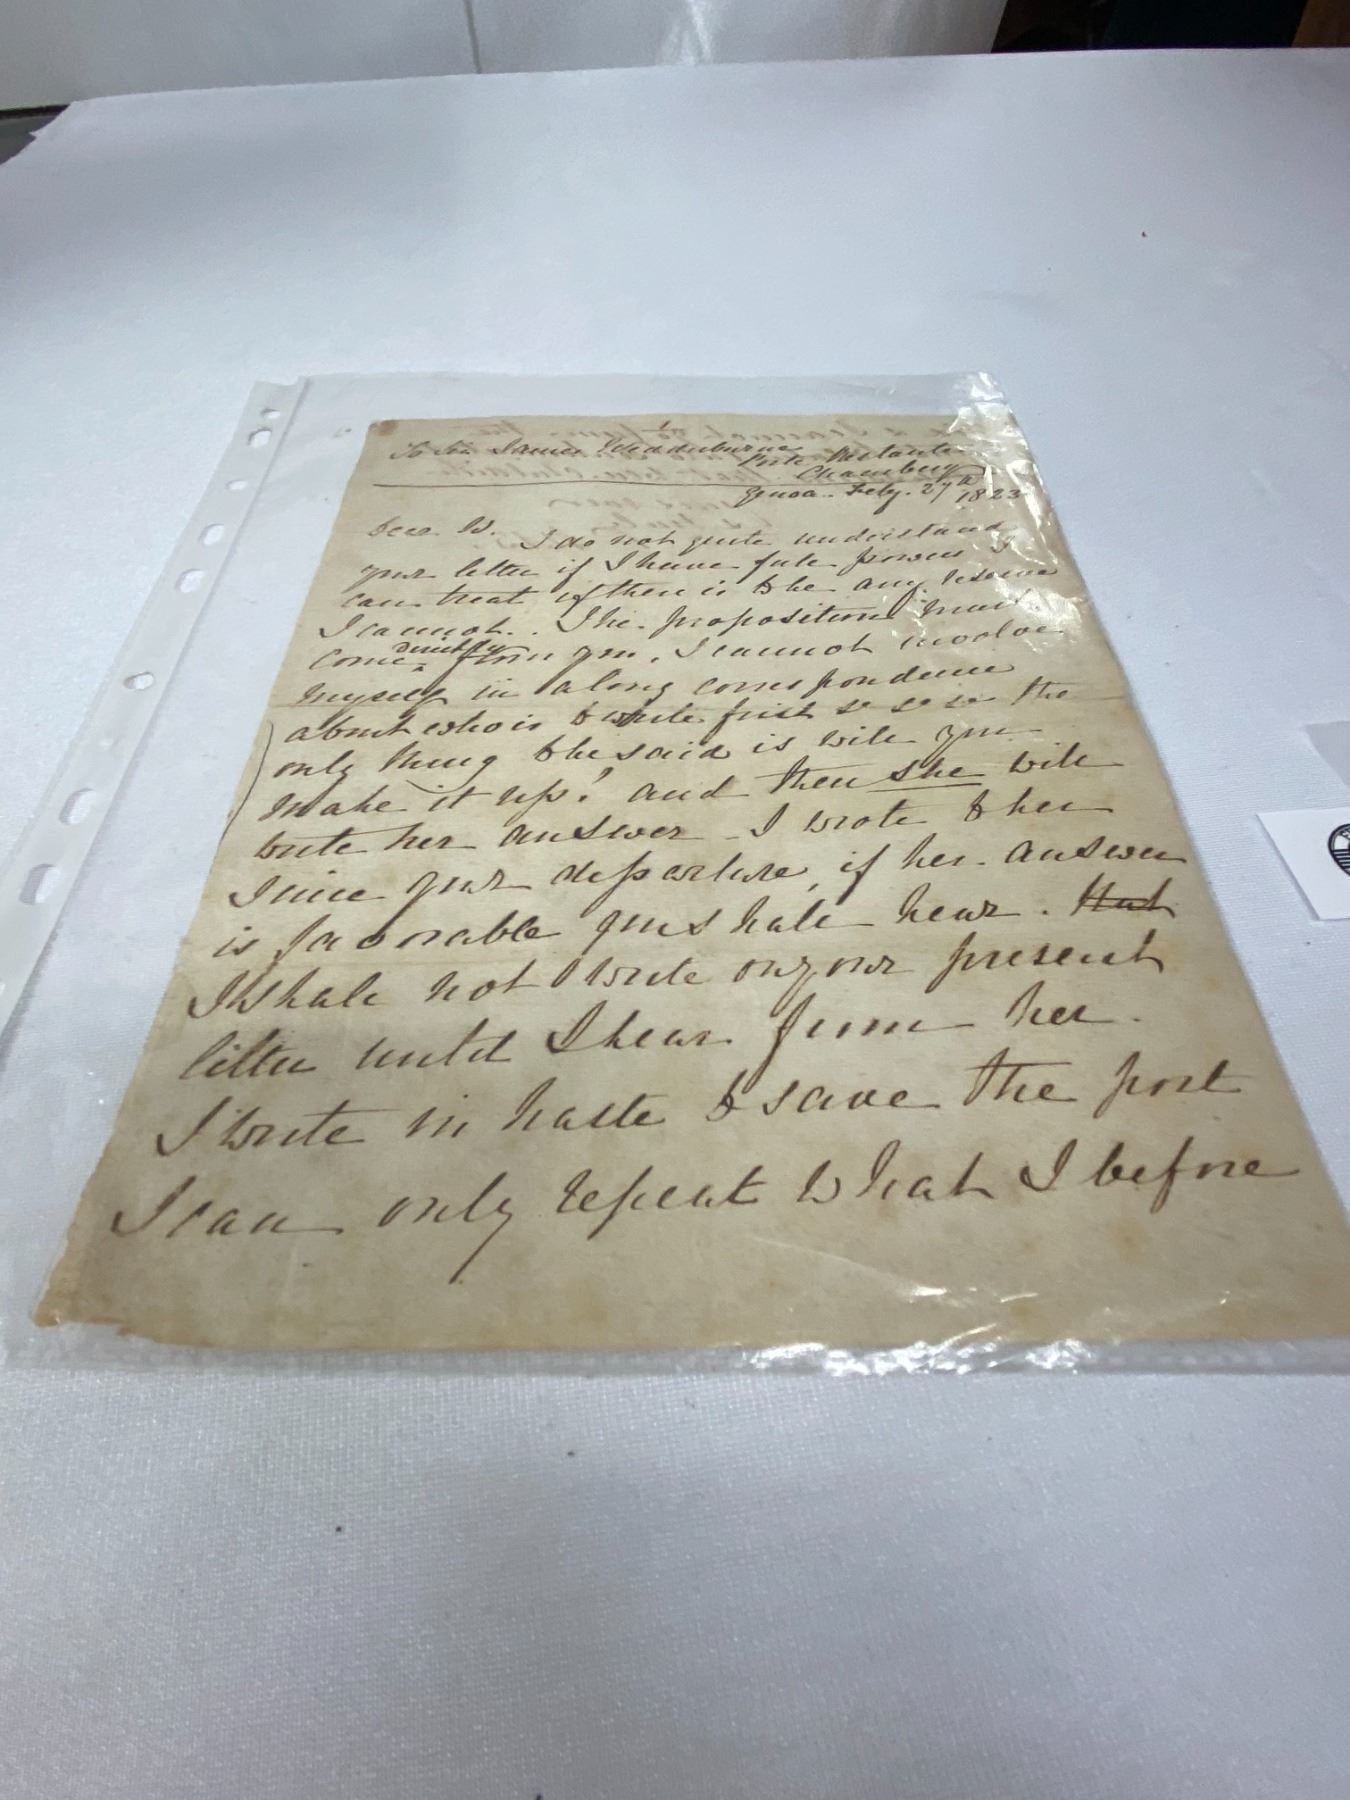 To Sir James Wedderburne
Poste Restante
Chambery
Genoa. Feby. 27th 1823
Dear W. I do not quite understand
your letter if I have full powers I
can treat if there is to be any reserve
I cannot. The proposition must
directly
come from you, I cannot involve
myself in a long correspondence
about who is to write first se se se the
only thing to be said is will you
make it up? and then she will
write her answer - I wrote to her
since your departure, if her answer
is favorable you shall hear. that
I shall not write on your present
letter until I hear from her.
I write in haste to save the post
I can only repeat what I before